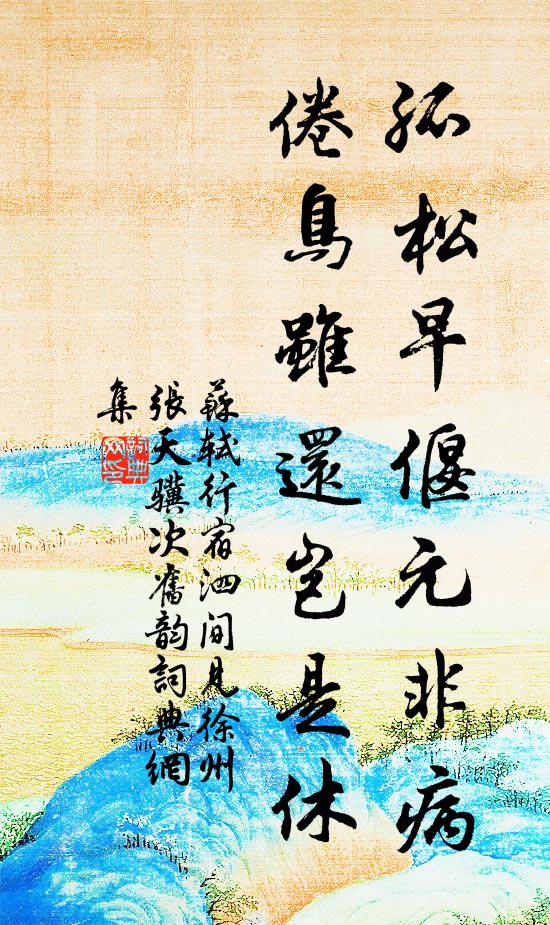 孤松早偃元非病
倦鳥雖還豈是休
蘇軾行宿泗間見徐州
張天驥次舊韵詞典網
集